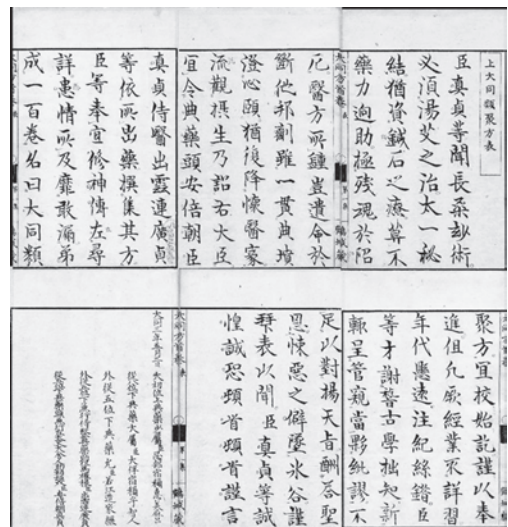 上大同類聚方表
臣真貞等聞長桑玅術
必須湯艾之治太一秘
結猶資鍼石之療莫不
藥力逈助極残魂於阽
大同方首卷 表
鶴城蔵
厄醫方所鍾豈遺命於
斷他邦副雖一貫典墳
澄心頤猶復降懐醫家
流觀摂生乃詔右大臣
宜令典藥頭安倍朝臣
真貞侍醫出雲連廣貞
等依所出藥撰集其方
臣等奉宣修神傳左尋
詳愚情所及靡敢漏第
成一百卷名曰大同類
聚方宜校始訖謹以奉
進但凡厥經業不詳習
年代懸遠注紀絲錯臣
等才謝嵆古學拙知新
輙呈管窺當夥紕謬不
足以對揚天旨酬荅聖
恩悚惡之僻墜氷谷謹
拜表以聞臣真貞等誠
惶誠恐頓首頓首謹言
大同方首卷 表
鶴城蔵